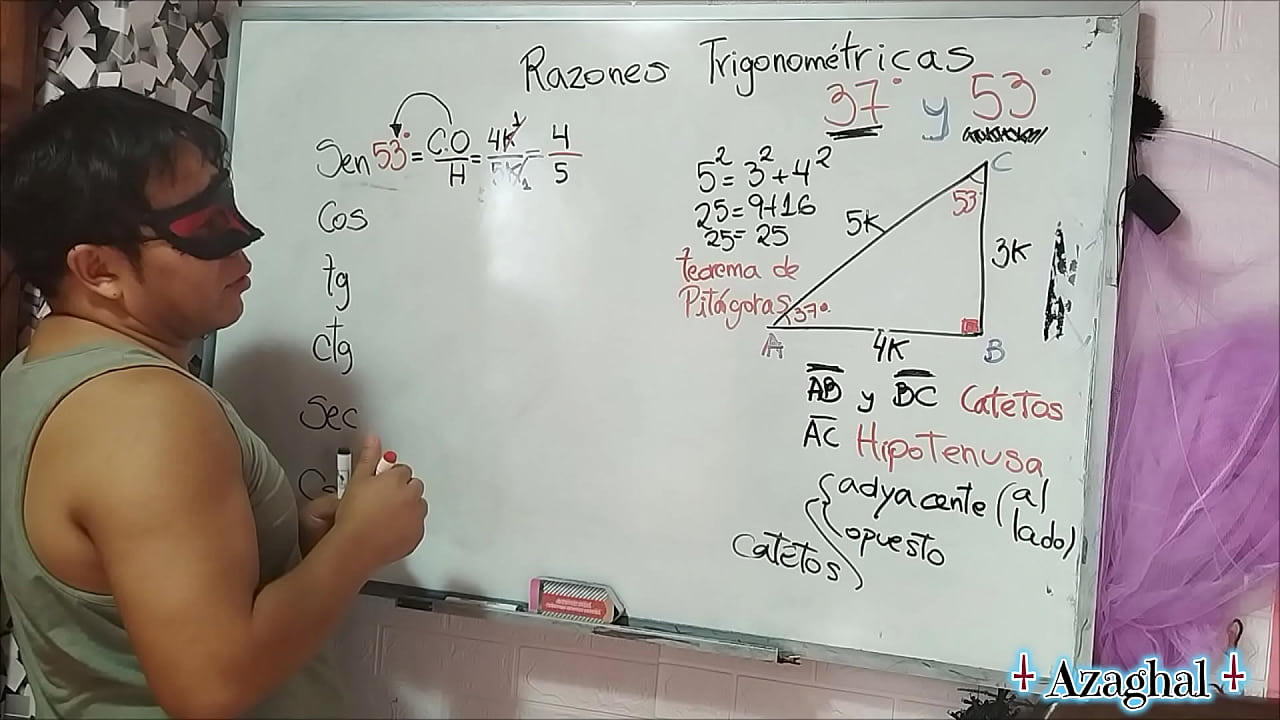 Razones Trigonométricas
37° y 53°
Sen 53° = C.O/H = 4K/5K = 4/5
Cos
tg
ctg
Sec
5² = 3² + 4²
25 = 9 + 16
25 = 25
teorema de
Pitágoras
C
53°
5K
3K
37°
A
4K
B
AB y BC Catetos
AC Hipotenusa
Catetos
adyacente (al
lado)
opuesto
Azaghal